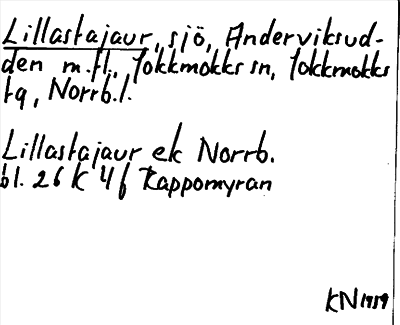 Lillastajaur, sjö, Anderviksud-
den m.fl., Jokkmokks sn, Jokkmokks
tg, Norrb.l.
Lillastajaur ek Norrb.
bl. 26 K 4 f Kappomyran
KN 1959